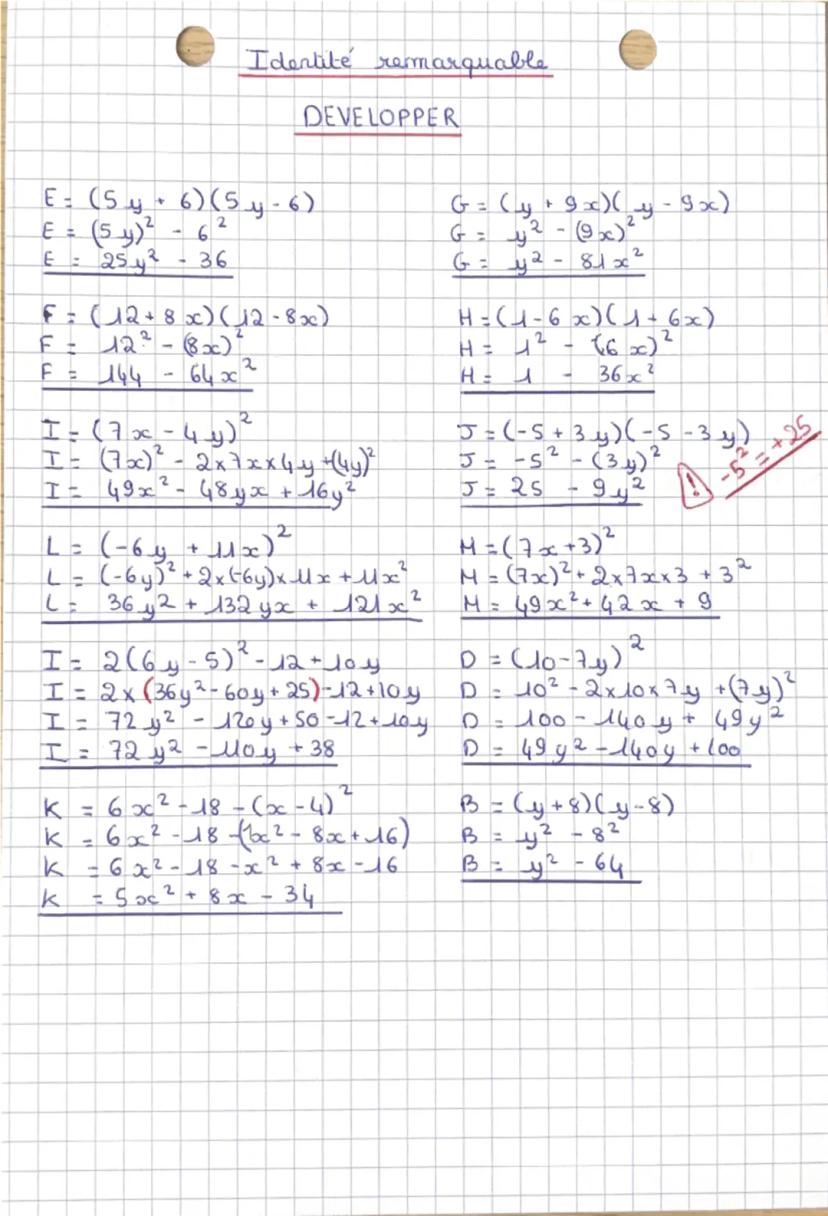 Identité remarquable
DEVELOPPER
E = (5y + 6)(5y - 6)
E = (5y)² - 6²
E = 25y² - 36
G = (y + 9x)(y - 9x)
G = y² - (9x)²
G = y² - 81x²
F = (12 + 8x)(12 - 8x)
F = 12² - (8x)²
F = 144 - 64x²
H = (1 - 6x)(1 + 6x)
H = 1² - (6x)²
H = 1 - 36x²
I = (7x - 4y)²
I = (7x)² - 2×7x×4y + (4y)²
I = 49x² - 48yx + 16y²
J = (-5 + 3y)(-5 - 3y)
J = -5² - (3y)²
J = 25 - 9y²
! -5² = +25
L = (-6y + 11x)²
L = (-6y)² + 2×(-6y)×11x + 11x²
L = 36y² + 132yx + 121x²
M = (7x + 3)²
M = (7x)² + 2×7x×3 + 3²
M = 49x² + 42x + 9
I = 2(6y - 5)² - 12 + 10y
I = 2×(36y² - 60y + 25) - 12 + 10y
I = 72y² - 120y + 50 - 12 + 10y
I = 72y² - 110y + 38
D = (10 - 7y)²
D = 10² - 2×10×7y + (7y)²
D = 100 - 140y + 49y²
D = 49y² - 140y + 100
K = 6x² - 18 - (x - 4)²
K = 6x² - 18 - (x² - 8x + 16)
K = 6x² - 18 - x² + 8x - 16
K = 5x² + 8x - 34
B = (y + 8)(y - 8)
B = y² - 8²
B = y² - 64